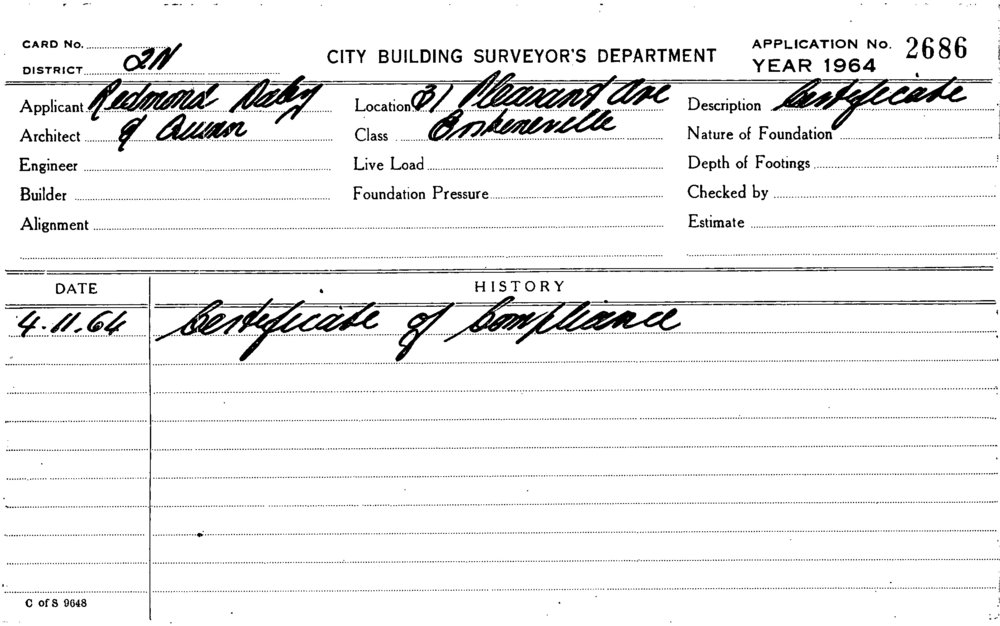 CARD No.
DISTRICT 2N
CITY BUILDING SURVEYOR'S DEPARTMENT
APPLICATION No. 2686
YEAR 1964
Applicant Redmond Daley
Location 31 Pleasant Ave
Description Certificate
Architect & Quinn
Class Erskineville
Nature of Foundation
Engineer
Live Load
Depth of Footings
Builder
Foundation Pressure
Checked by
Alignment
Estimate
DATE
HISTORY
4.11.64 Certificate of Compliance
C of S 9648